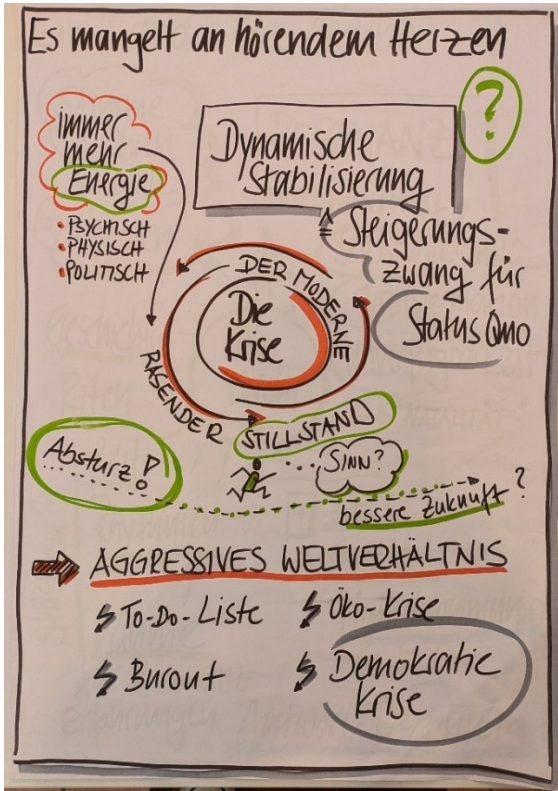 Es mangelt an hörendem Herzen
?
immer
mehr
Energie
• PSYCHISCH
• PHYSISCH
• POLITISCH
Dynamische
Stabilisierung
≙ Steigerungs-
zwang für
Status Quo
DER MODERNE
Die
Krise
RASENDER
STILLSTAND
... SINN?
Absturz!
bessere Zukunft?
AGGRESSIVES WELTVERHÄLTNIS
To-Do-Liste
Öko-Krise
Burout
Demokratie
Krise